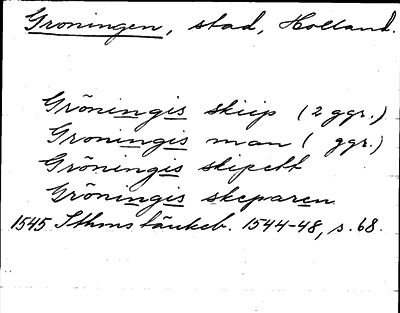 Groningen, stad, Holland.
Gröningis skiip (2 ggr.)
Groningis man ( ggr.)
Gröningis skipett
Gröningis skeparen
1545 Sthms tänkeb. 1544-48, s. 68.